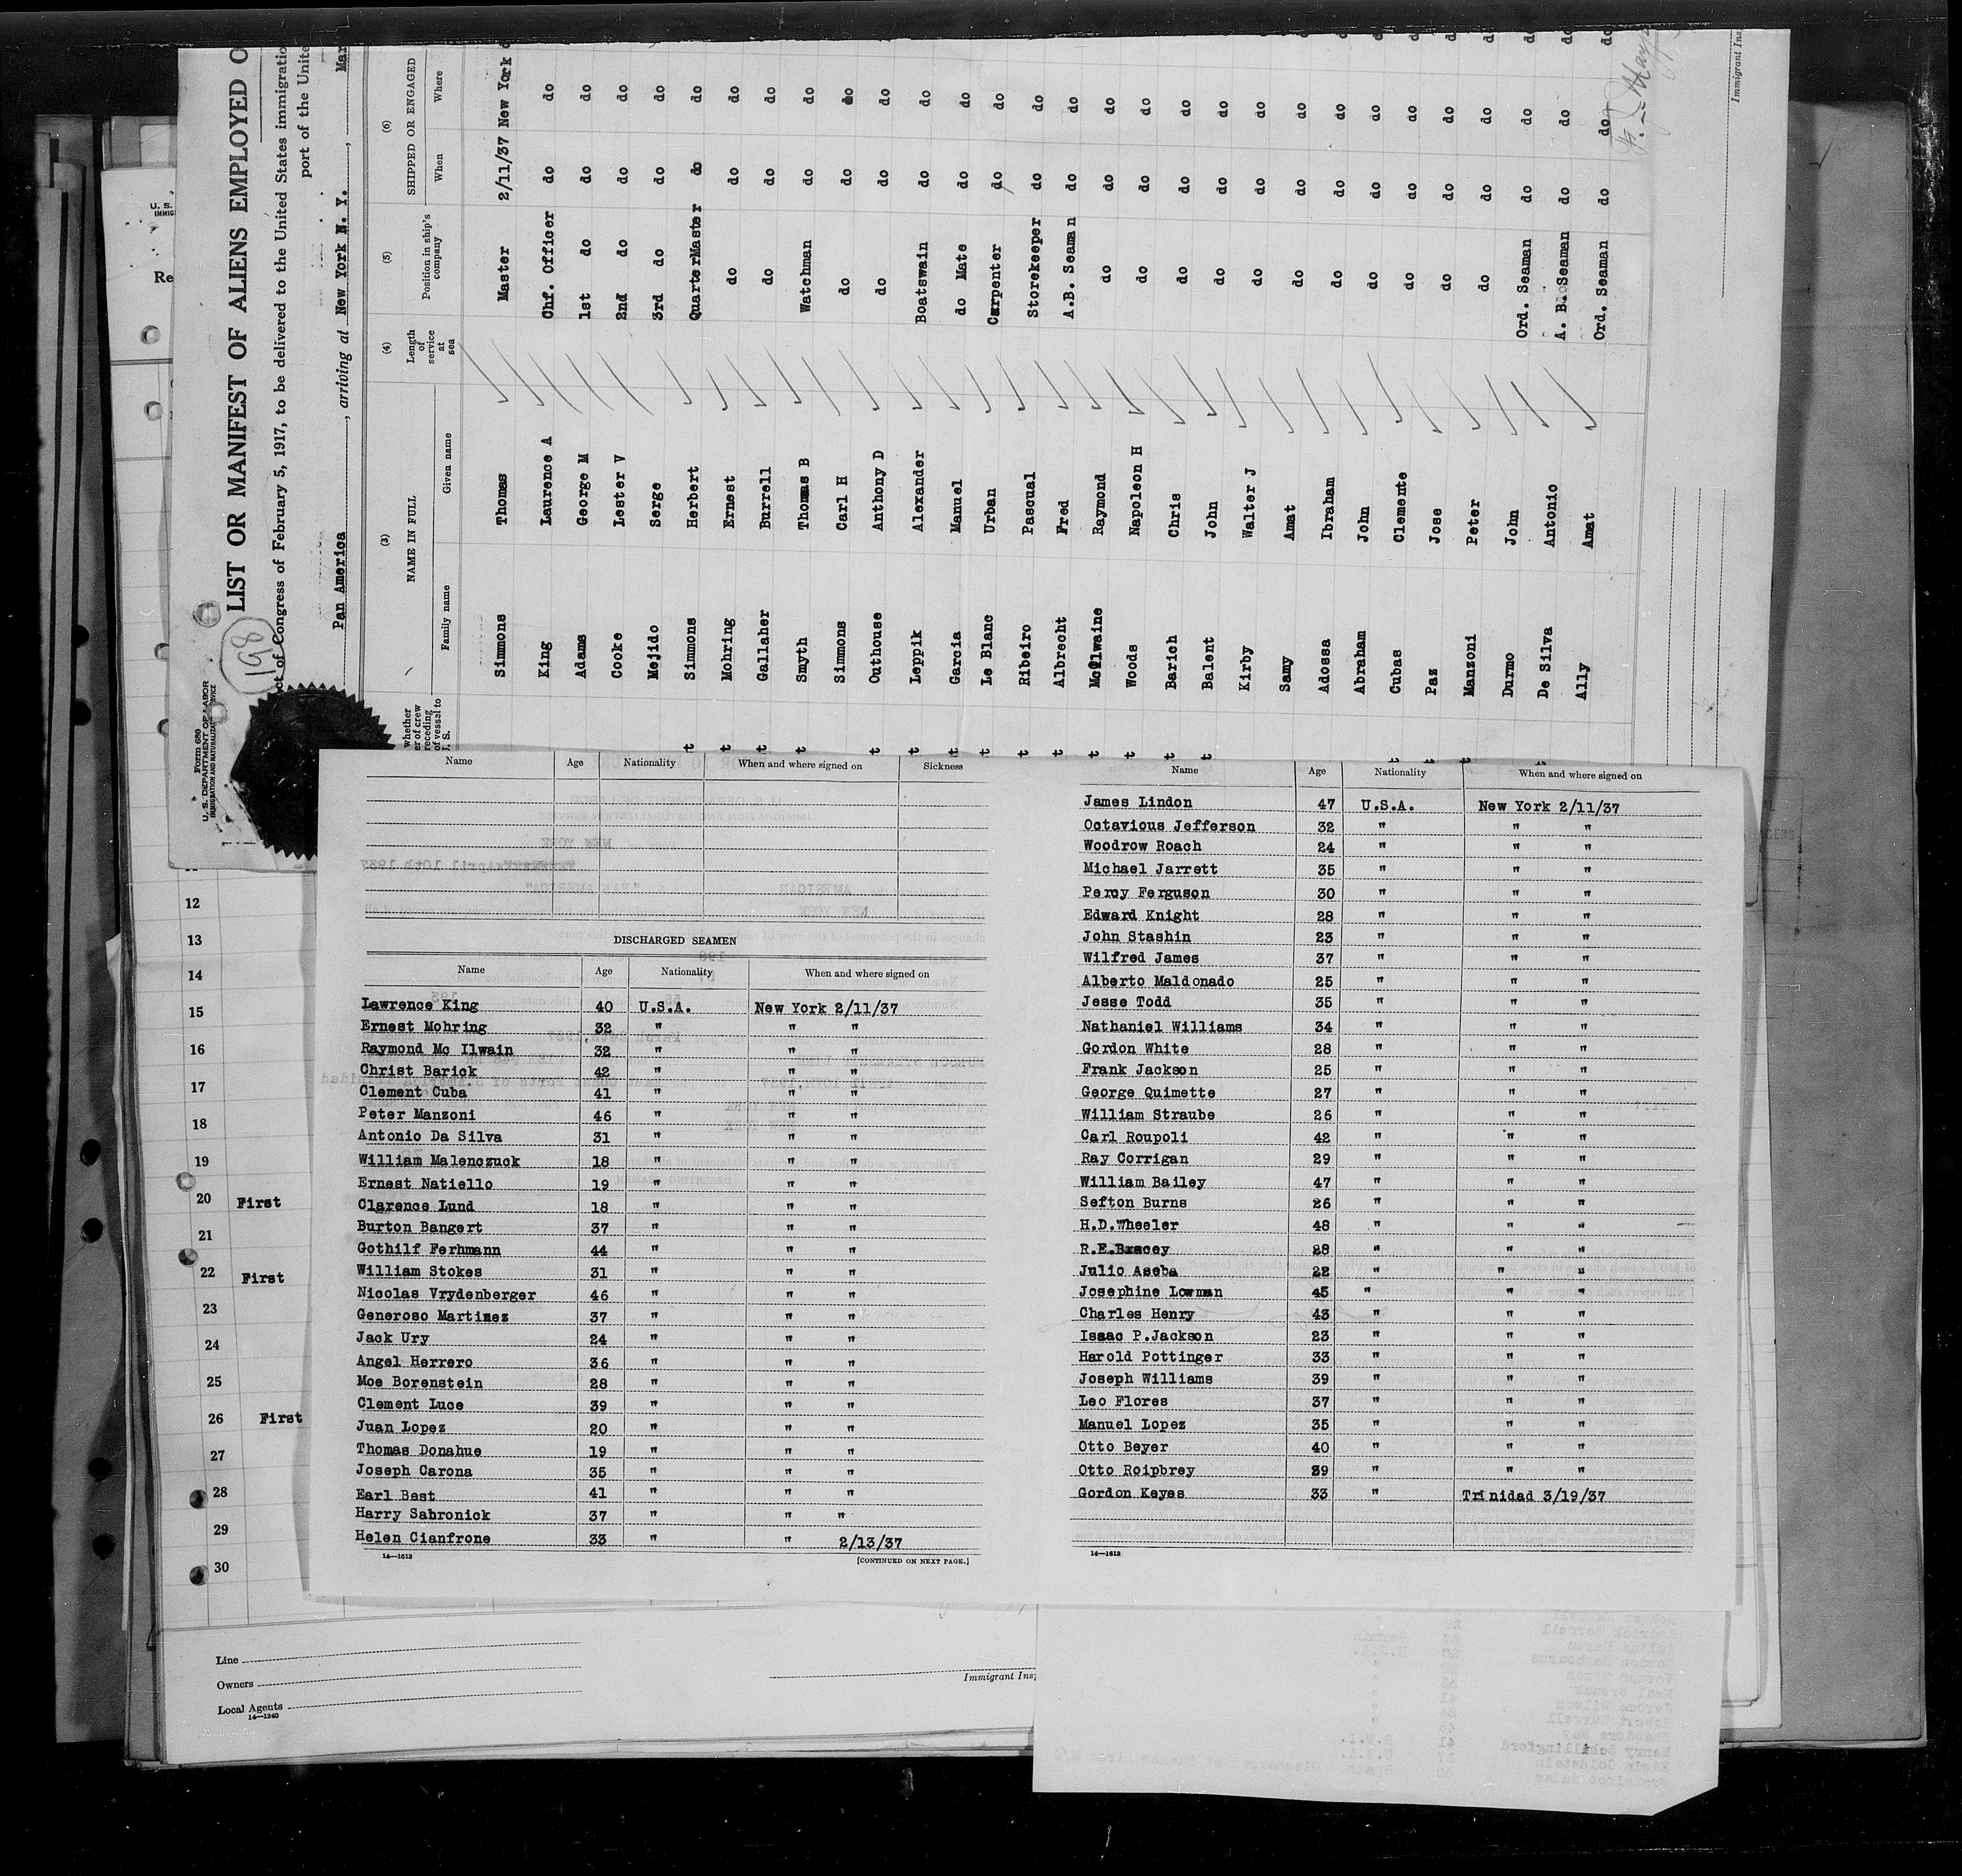 Form 680
U. S. DEPARTMENT OF LABOR
IMMIGRATION AND NATURALIZATION SERVICE
198
LIST OR MANIFEST OF ALIENS EMPLOYED O
ct of Congress of February 5, 1917, to be delivered to the United States immigratio
port of the Unite
Pan America, arriving at New York N. Y., Mar
(3) (4) (5) (6)
NAME IN FULL Length of service at sea Position in ship's company SHIPPED OR ENGAGED
Family name Given name When Where
Simmons Thomas Master 2/11/37 New York
King Laurence A Chf. Officer do do
Adams George M 1st do do do
Cooke Lester V 2nd do do do
Mejido Serge 3rd do do do
Simmons Herbert QuarterMaster do do
Mohring Ernest do do do
Gallaher Burrell do do do
Smyth Thomas B Watchman do do
Simmons Carl H do do do
Outhouse Anthony D do do do
Leppik Alexander Boatswain do do
Garcia Manuel do Mate do do
Le Blanc Urban Carpenter do do
Ribeiro Pascual Storekeeper do do
Albrecht Fred A.B. Seaman do do
McIlwaine Raymond do do do
Woods Napoleon H do do do
Barich Chris do do do
Balent John do do do
Kirby Walter J do do do
Samy Amat do do do
Adossa Ibraham do do do
Abraham John do do do
Cubas Clemente do do do
Paz Jose do do do
Manzoni Peter do do do
Durmo John Ord. Seaman do do
De Silva Antonio A. B. Seaman do do
Ally Amat Ord. Seaman do do
Immigrant Ins
U. S.
IMMIG
Re
12
13
14
15
16
17
18
19
20 First
21
22 First
23
24
25
26 First
27
28
29
30
Line
Owners
Local Agents
14—1240
Immigrant Ins
Name Age Nationality When and where signed on Sickness
DISCHARGED SEAMEN
Name Age Nationality When and where signed on
Lawrence King 40 U.S.A. New York 2/11/37
Ernest Mohring 32 " " "
Raymond Mc Ilwain 32 " " "
Christ Barick 42 " " "
Clement Cuba 41 " " "
Peter Manzoni 46 " " "
Antonio Da Silva 31 " " "
William Malenczuck 18 " " "
Ernest Natiello 19 " " "
Clarence Lund 18 " " "
Burton Bangert 37 " " "
Gothilf Ferhmann 44 " " "
William Stokes 31 " " "
Nicolas Vrydenberger 46 " " "
Generoso Martinez 37 " " "
Jack Ury 24 " " "
Angel Herrero 36 " " "
Moe Borenstein 28 " " "
Clement Luce 39 " " "
Juan Lopez 20 " " "
Thomas Donahue 19 " " "
Joseph Carona 35 " " "
Earl Best 41 " " "
Harry Sabronick 37 " " "
Helen Cianfrone 33 " " 2/13/37
14—1612 [CONTINUED ON NEXT PAGE.]
Name Age Nationality When and where signed on
James Lindon 47 U.S.A. New York 2/11/37
Octavious Jefferson 32 " " "
Woodrow Roach 24 " " "
Michael Jarrett 35 " " "
Percy Ferguson 30 " " "
Edward Knight 28 " " "
John Stashin 23 " " "
Wilfred James 37 " " "
Alberto Maldonado 25 " " "
Jesse Todd 35 " " "
Nathaniel Williams 34 " " "
Gordon White 28 " " "
Frank Jackson 25 " " "
George Quimette 27 " " "
William Straube 26 " " "
Carl Roupoli 42 " " "
Ray Corrigan 29 " " "
William Bailey 47 " " "
Sefton Burns 26 " " "
H.D.Wheeler 48 " " "
R.E.Bracey 28 " " "
Julio Aseba 22 " " "
Josephine Lowman 45 " " "
Charles Henry 43 " " "
Isaac P.Jackson 23 " " "
Harold Pottinger 33 " " "
Joseph Williams 39 " " "
Leo Flores 37 " " "
Manuel Lopez 35 " " "
Otto Beyer 40 " " "
Otto Roipbrey 39 " " "
Gordon Keyes 33 " Trinidad 3/19/37
14—1612